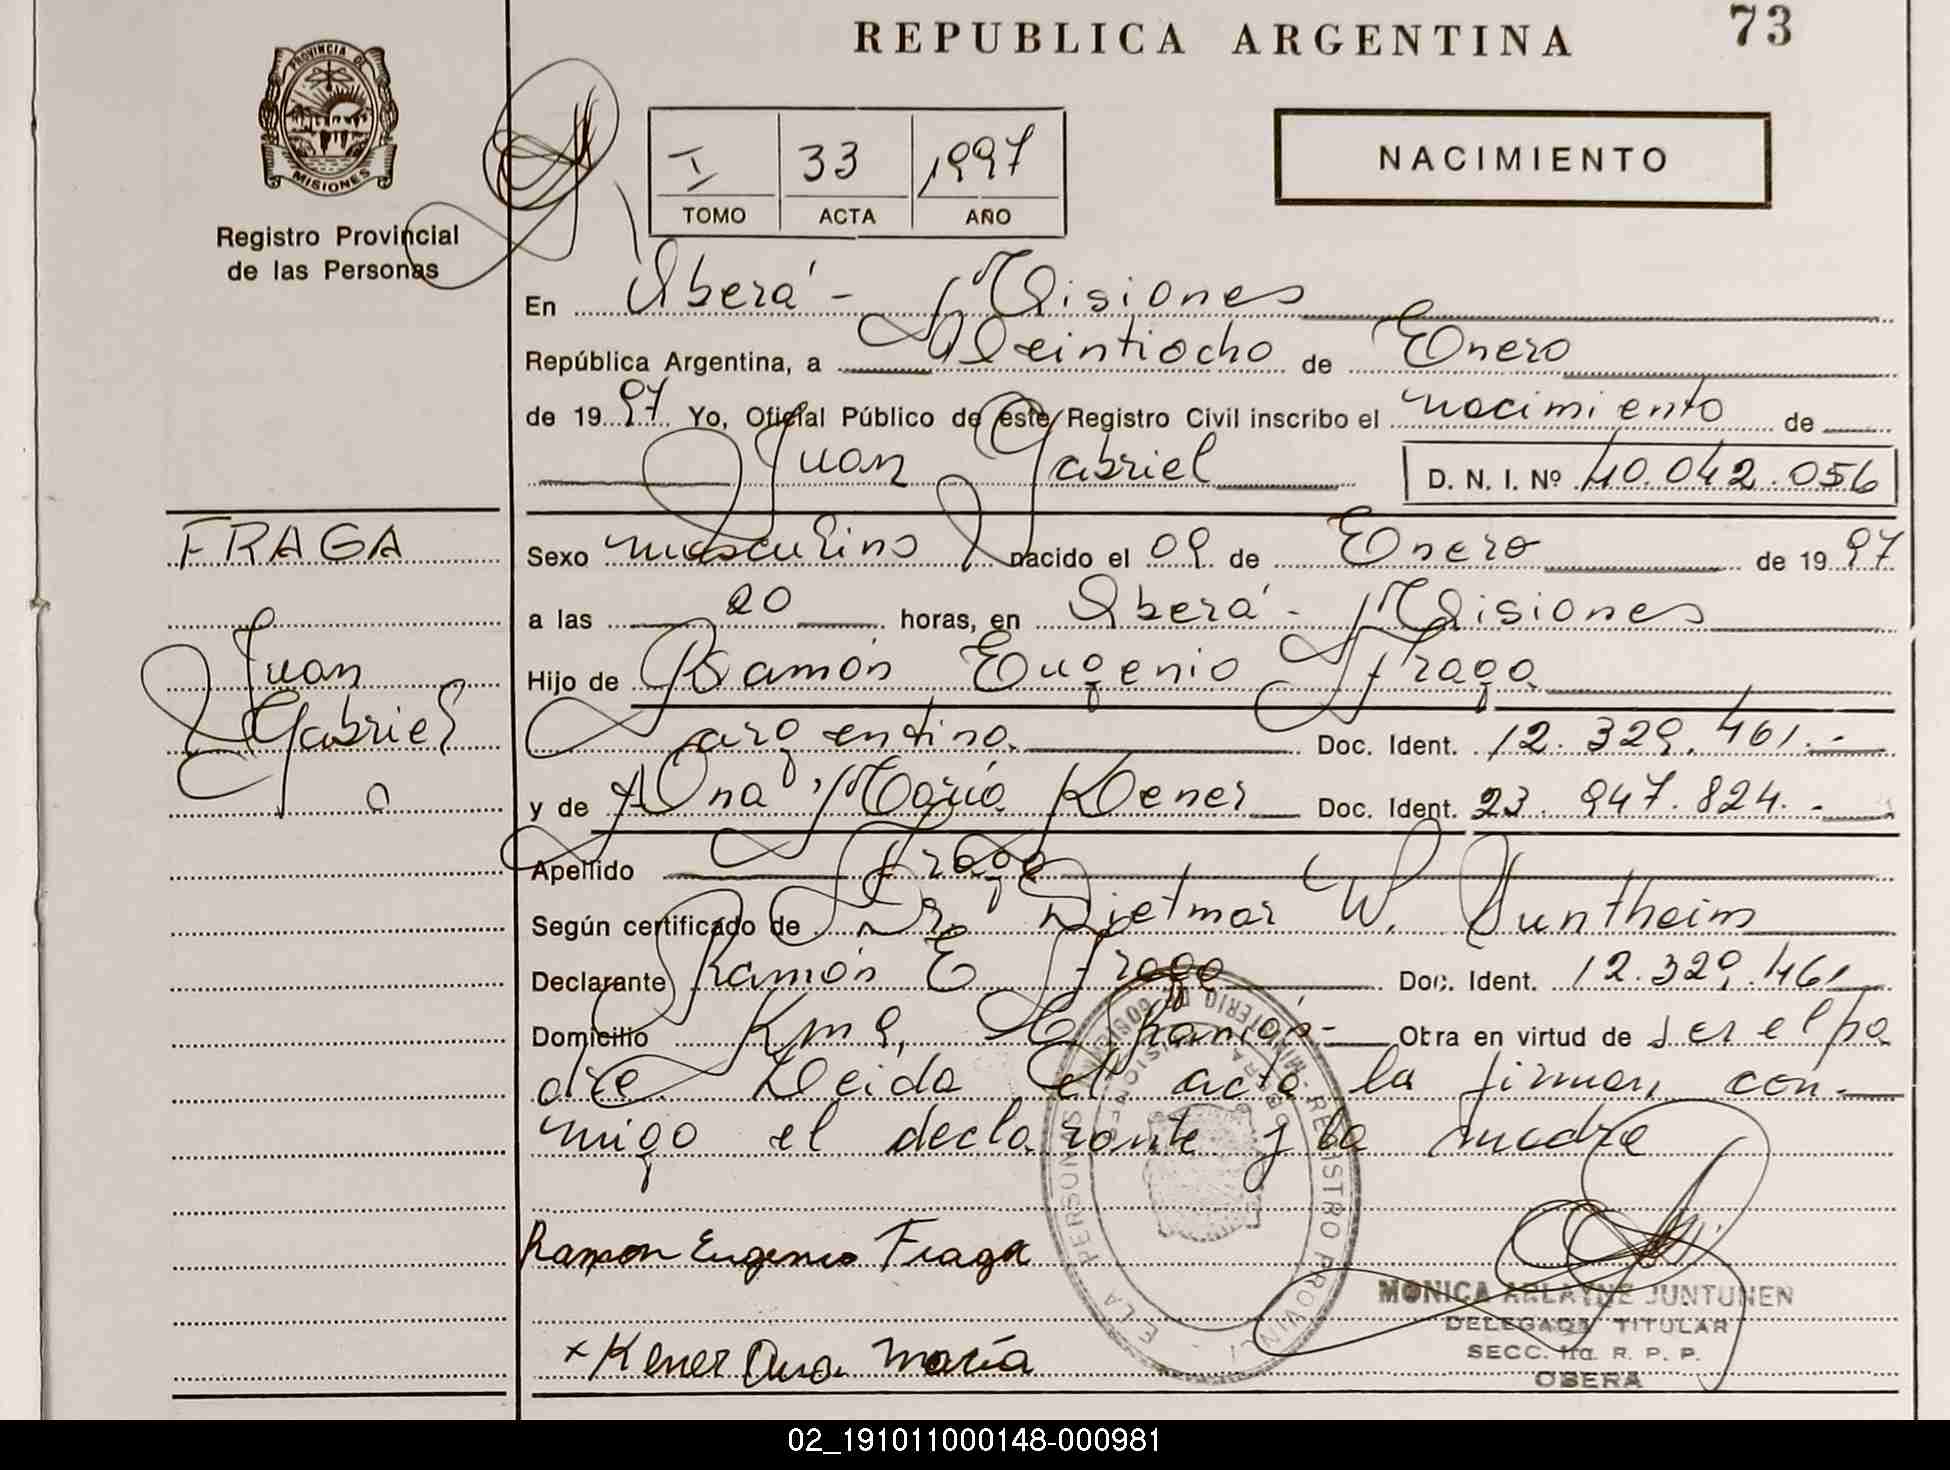 REPUBLICA ARGENTINA
73
PROVINCIA DE
MISIONES
Registro Provincial
de las Personas
I 33 1997
TOMO ACTA AÑO
NACIMIENTO
En Oberá - Misiones
República Argentina, a Veintiocho de Enero
de 1997 Yo, Oficial Público de este Registro Civil inscribo el nacimiento de
Juan Gabriel D. N. I. Nº 40.042.056
FRAGA
Juan
Gabriel
Sexo masculino nacido el 09 de Enero de 1997
a las 20 horas, en Oberá - Misiones
Hijo de Ramón Eugenio Fraga
argentino. Doc. Ident. 12.329.461.-
y de Ana María Kener Doc. Ident. 23.947.824.-
Apellido Fraga
Según certificado de Dr. Dietmar W. Suntheim
Declarante Ramón E Fraga Doc. Ident. 12.329.461
Domicilio Km 9, Otra en virtud de ser el pa
dre Leida el acta la firman con-
migo el declarante y la madre
Ramon Eugenio Fraga
x Kener Ana María
MINISTERIO DE GOBIERNO - REGISTRO PROVINCIAL DE LAS PERSONAS
OBERA MISIONES
MONICA ARLAYNE JUNTUNEN
DELEGADA TITULAR
SECC. 1ra. R. P. P.
OBERA
02_191011000148-000981